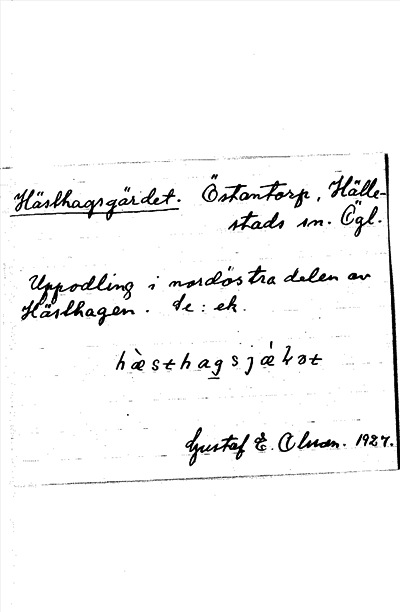 Hästhagsgärdet. Östantorp, Hälle-
stads sn. Ögl.
Uppodling i nordöstra delen av
Hästhagen. Se: ek.
hæ̀sthagsjǽɽət
Gustaf E. Olsson. 1927.